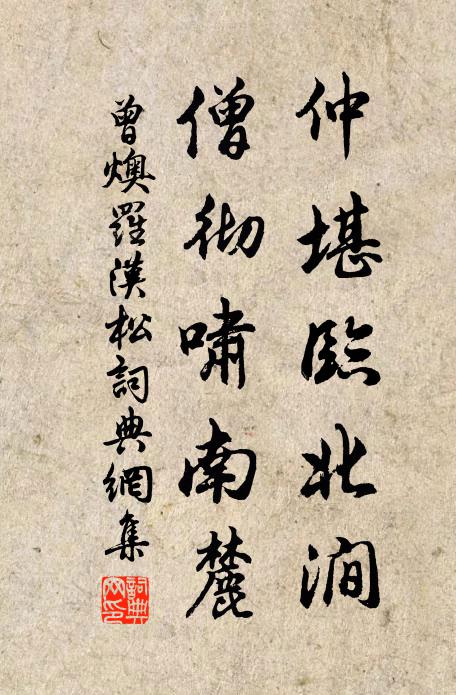 仲堪臨北澗
僧彻啸南麓
曾燠羅漢松詞典網集
詞典
网印